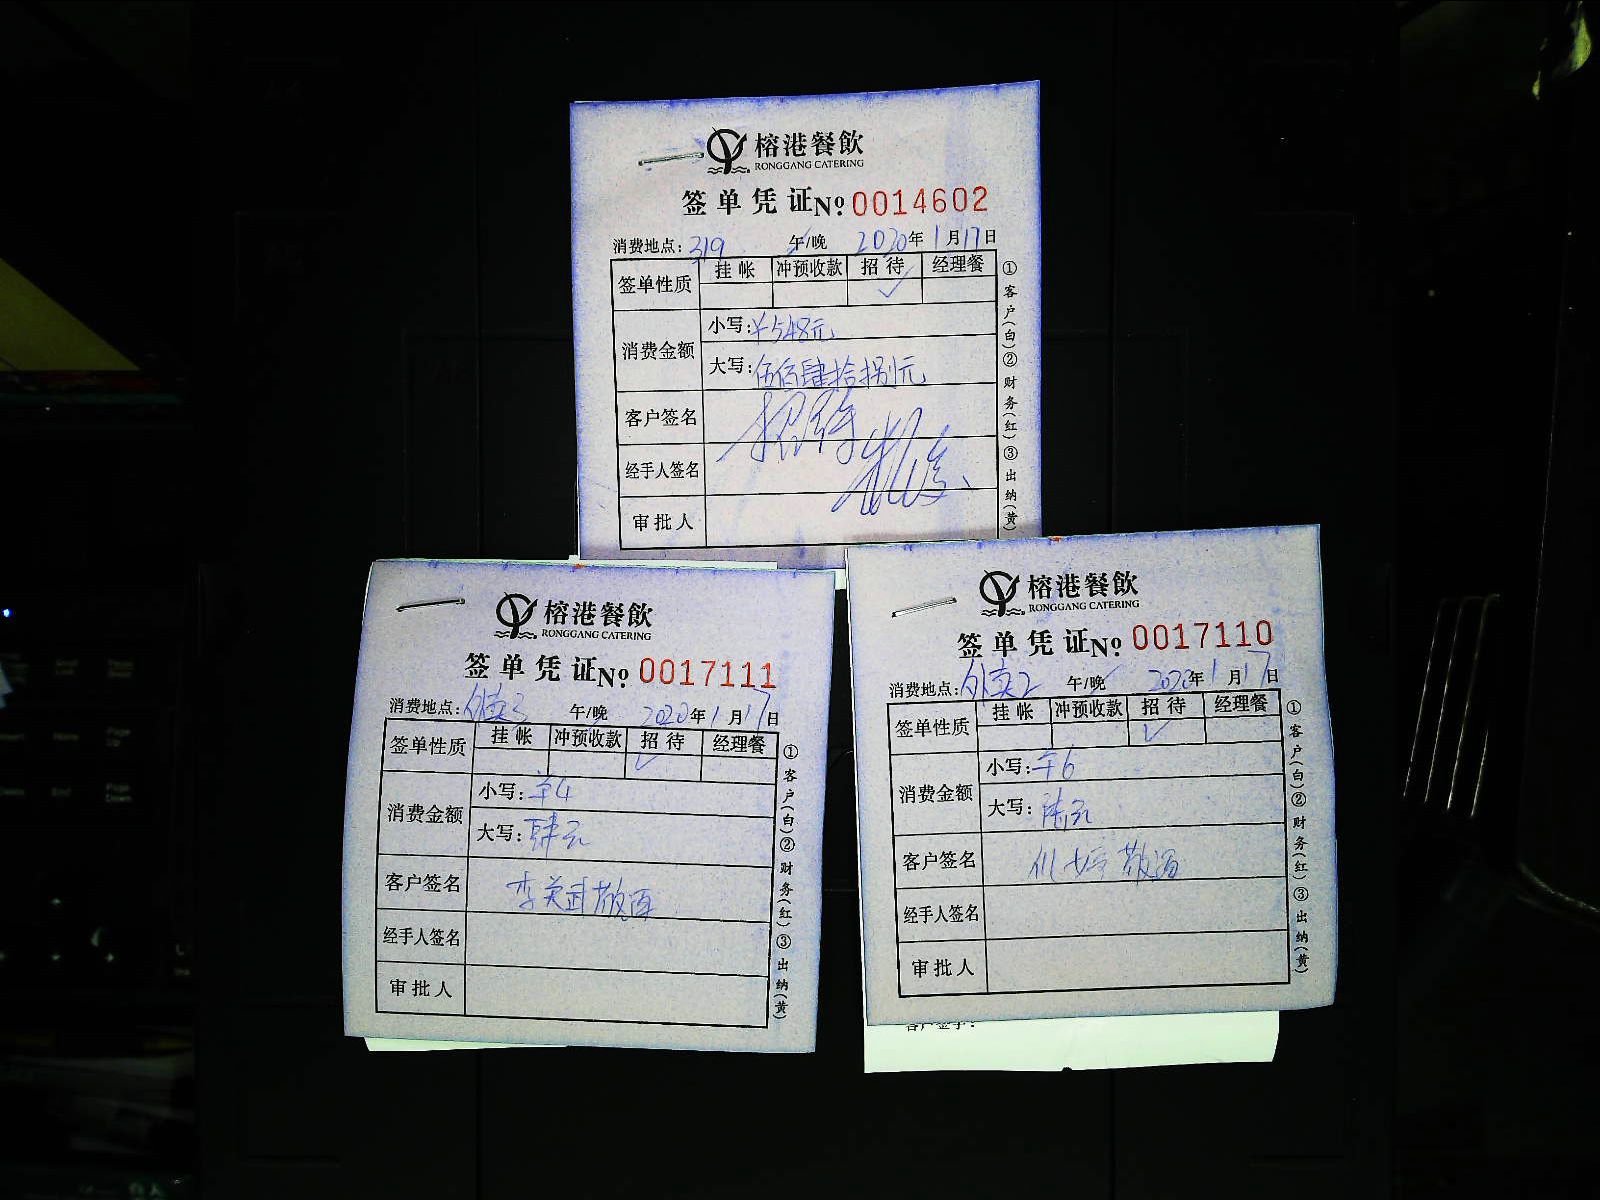 榕港餐飲
RONGGANG CATERING
签单凭证 No 0014602
消费地点: 319 午/晚 2020年1月17日
签单性质 挂帐 冲预收款 招待 经理餐
✓
消费金额 小写: ¥548元
大写: 伍佰肆拾捌元
客户签名 招待
经手人签名
审批人
①客户(白)②财务(红)③出纳(黄)
榕港餐飲
RONGGANG CATERING
签单凭证 No 0017111
消费地点: 外卖3 午/晚 2020年1月17日
签单性质 挂帐 冲预收款 招待 经理餐
✓
消费金额 小写: ¥4
大写: 肆元
客户签名 李美武敬酒
经手人签名
审批人
①客户(白)②财务(红)③出纳(黄)
榕港餐飲
RONGGANG CATERING
签单凭证 No 0017110
消费地点: 外卖2 午/晚 2020年1月17日
签单性质 挂帐 冲预收款 招待 经理餐
✓
消费金额 小写: ¥6
大写: 陆元
客户签名 敬酒
经手人签名
审批人
①客户(白)②财务(红)③出纳(黄)